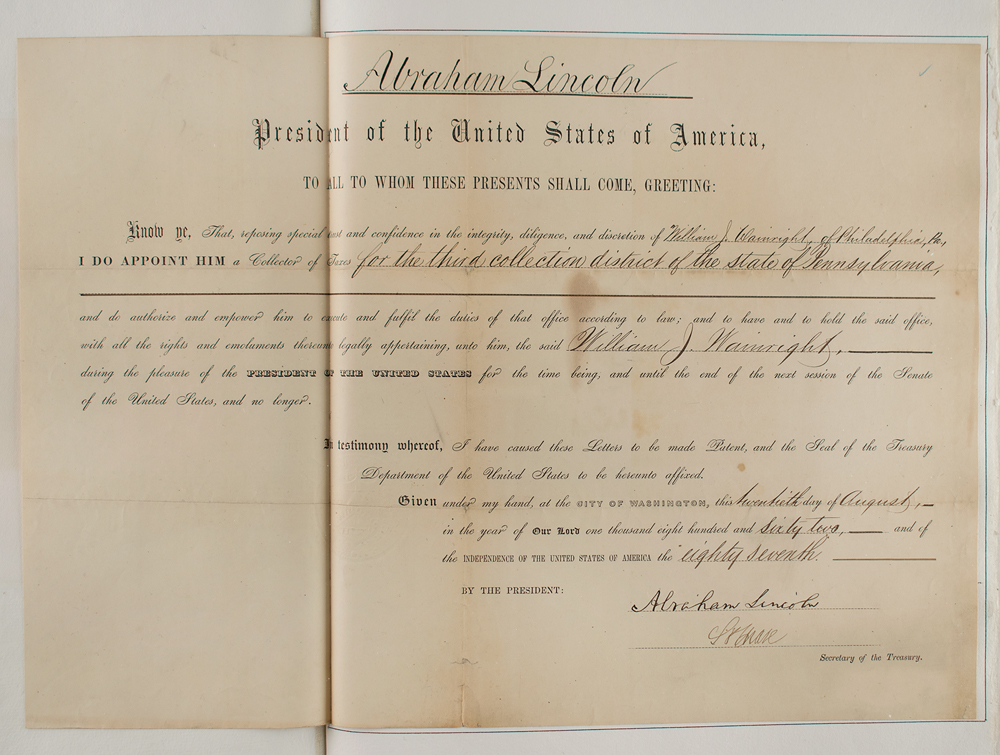 Abraham Lincoln
President of the United States of America,
TO ALL TO WHOM THESE PRESENTS SHALL COME, GREETING:
Know ye, That, reposing special trust and confidence in the integrity, diligence, and discretion of William J. Wainright, of Philadelphia, Pa,
I DO APPOINT HIM a Collector of Taxes for the third collection district of the state of Pennsylvania,
and do authorize and empower him to execute and fulfil the duties of that office according to law; and to have and to hold the said office,
with all the rights and emoluments thereunto legally appertaining, unto him, the said William J. Wainright,
during the pleasure of the PRESIDENT OF THE UNITED STATES for the time being, and until the end of the next session of the Senate
of the United States, and no longer.
In testimony whereof, I have caused these Letters to be made Patent, and the Seal of the Treasury
Department of the United States to be hereunto affixed.
Given under my hand, at the CITY OF WASHINGTON, this twentieth day of August,
in the year of Our Lord one thousand eight hundred and sixty two, and of
the INDEPENDENCE OF THE UNITED STATES OF AMERICA the eighty seventh.
BY THE PRESIDENT:
Abraham Lincoln
S P Chase
Secretary of the Treasury.